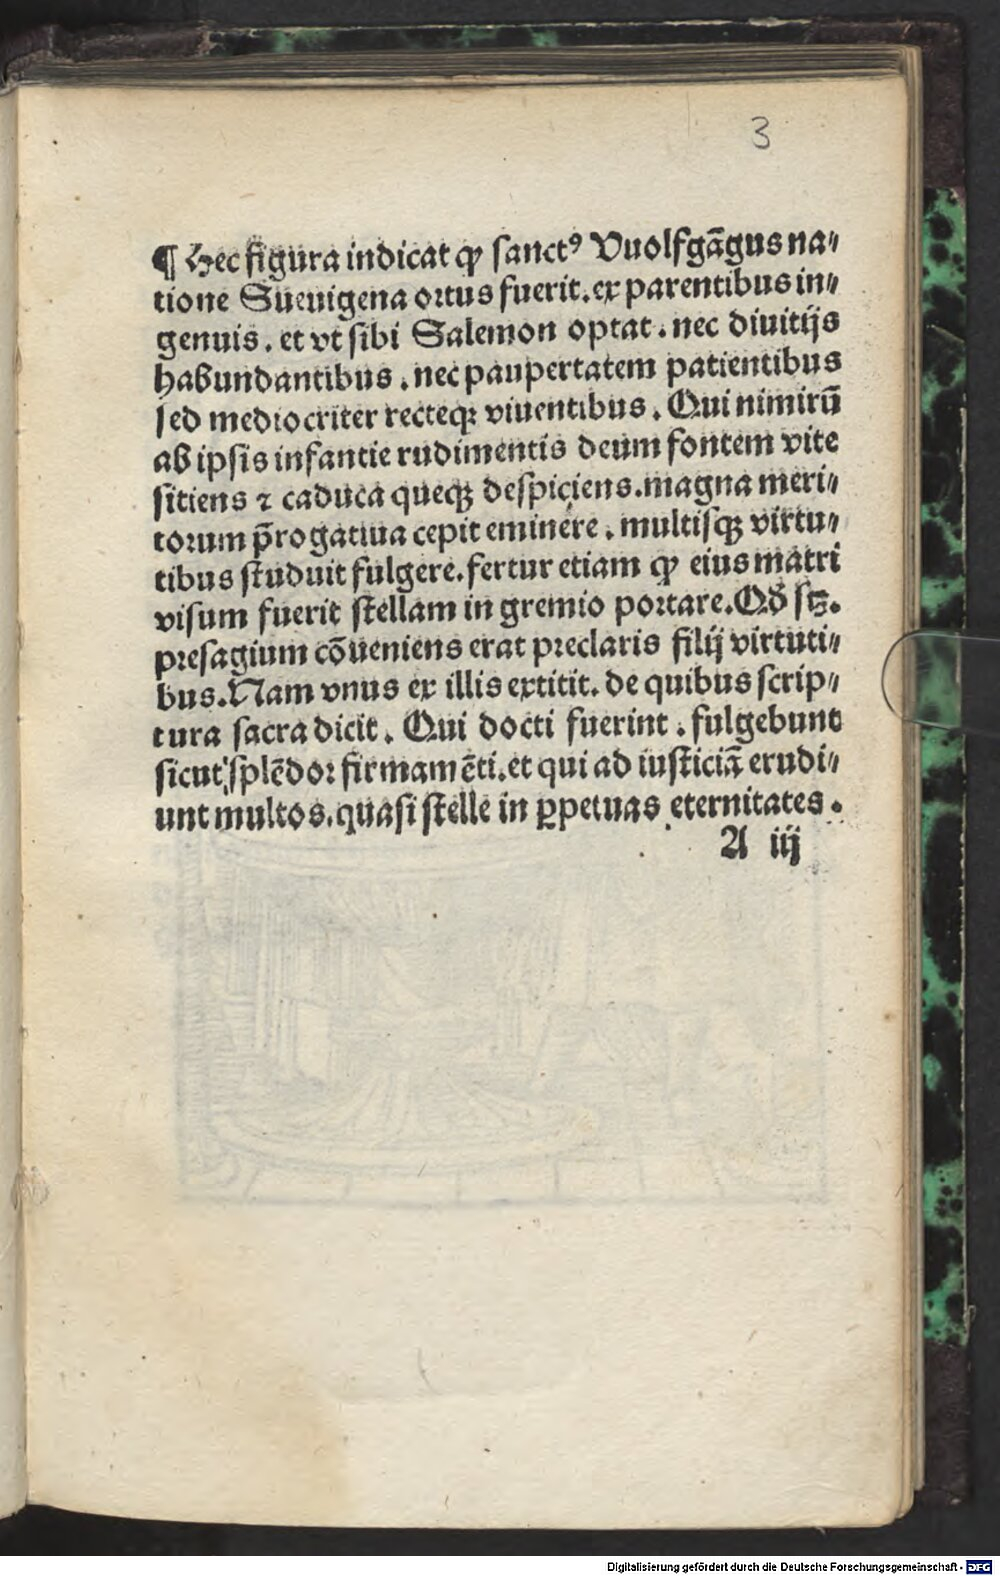 3
¶ Hec figura indicat ꝙ sanctꝰ Vuolfgāgus na⸗
tione Sueuigena ortus fuerit. ex parentibus in⸗
genuis. et vt sibi Salemon optat. nec diuitijs
habundantibus. nec paupertatem patientibus
sed mediocriter recteqꝫ viuentibus. Qui nimirū
ab ipsis infantie rudimentis deum fontem vite
sitiens ⁊ caduca queqꝫ despiciens. magna meri⸗
torum p̄rogatiua cepit eminere. multisqꝫ virtu⸗
tibus studuit fulgere. fertur etiam ꝙ eius matri
visum fuerit stellam in gremio portare. Qḋ sꝫ.
presagium cōueniens erat preclaris filij virtuti⸗
bus. Nam vnus ex illis extitit. de quibus scrip⸗
tura sacra dicit. Qui docti fuerint. fulgebunt
sicut splēdor firmamēti. et qui ad iusticiā erudi⸗
unt multos. quasi stelle in ꝑpetuas eternitates.
A iij
Digitalisierung gefördert durch die Deutsche Forschungsgemeinschaft - DFG